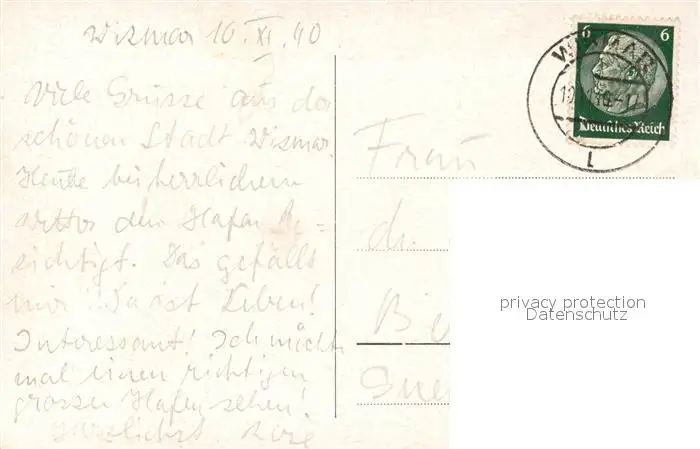 Wismar 10. XI. 40
Viele Grüsse aus der
schönen Stadt Wismar.
Heute bei herrlichem
Wetter den Hafen be-
sichtigt. Das gefällt
mir! Da ist Leben!
Interessant! Ich möcht
mal einen richtigen
grossen Hafen sehen!
Herzlichst
6 6
Deutsches Reich
WISMAR
L
Frau
privacy protection
Datenschutz